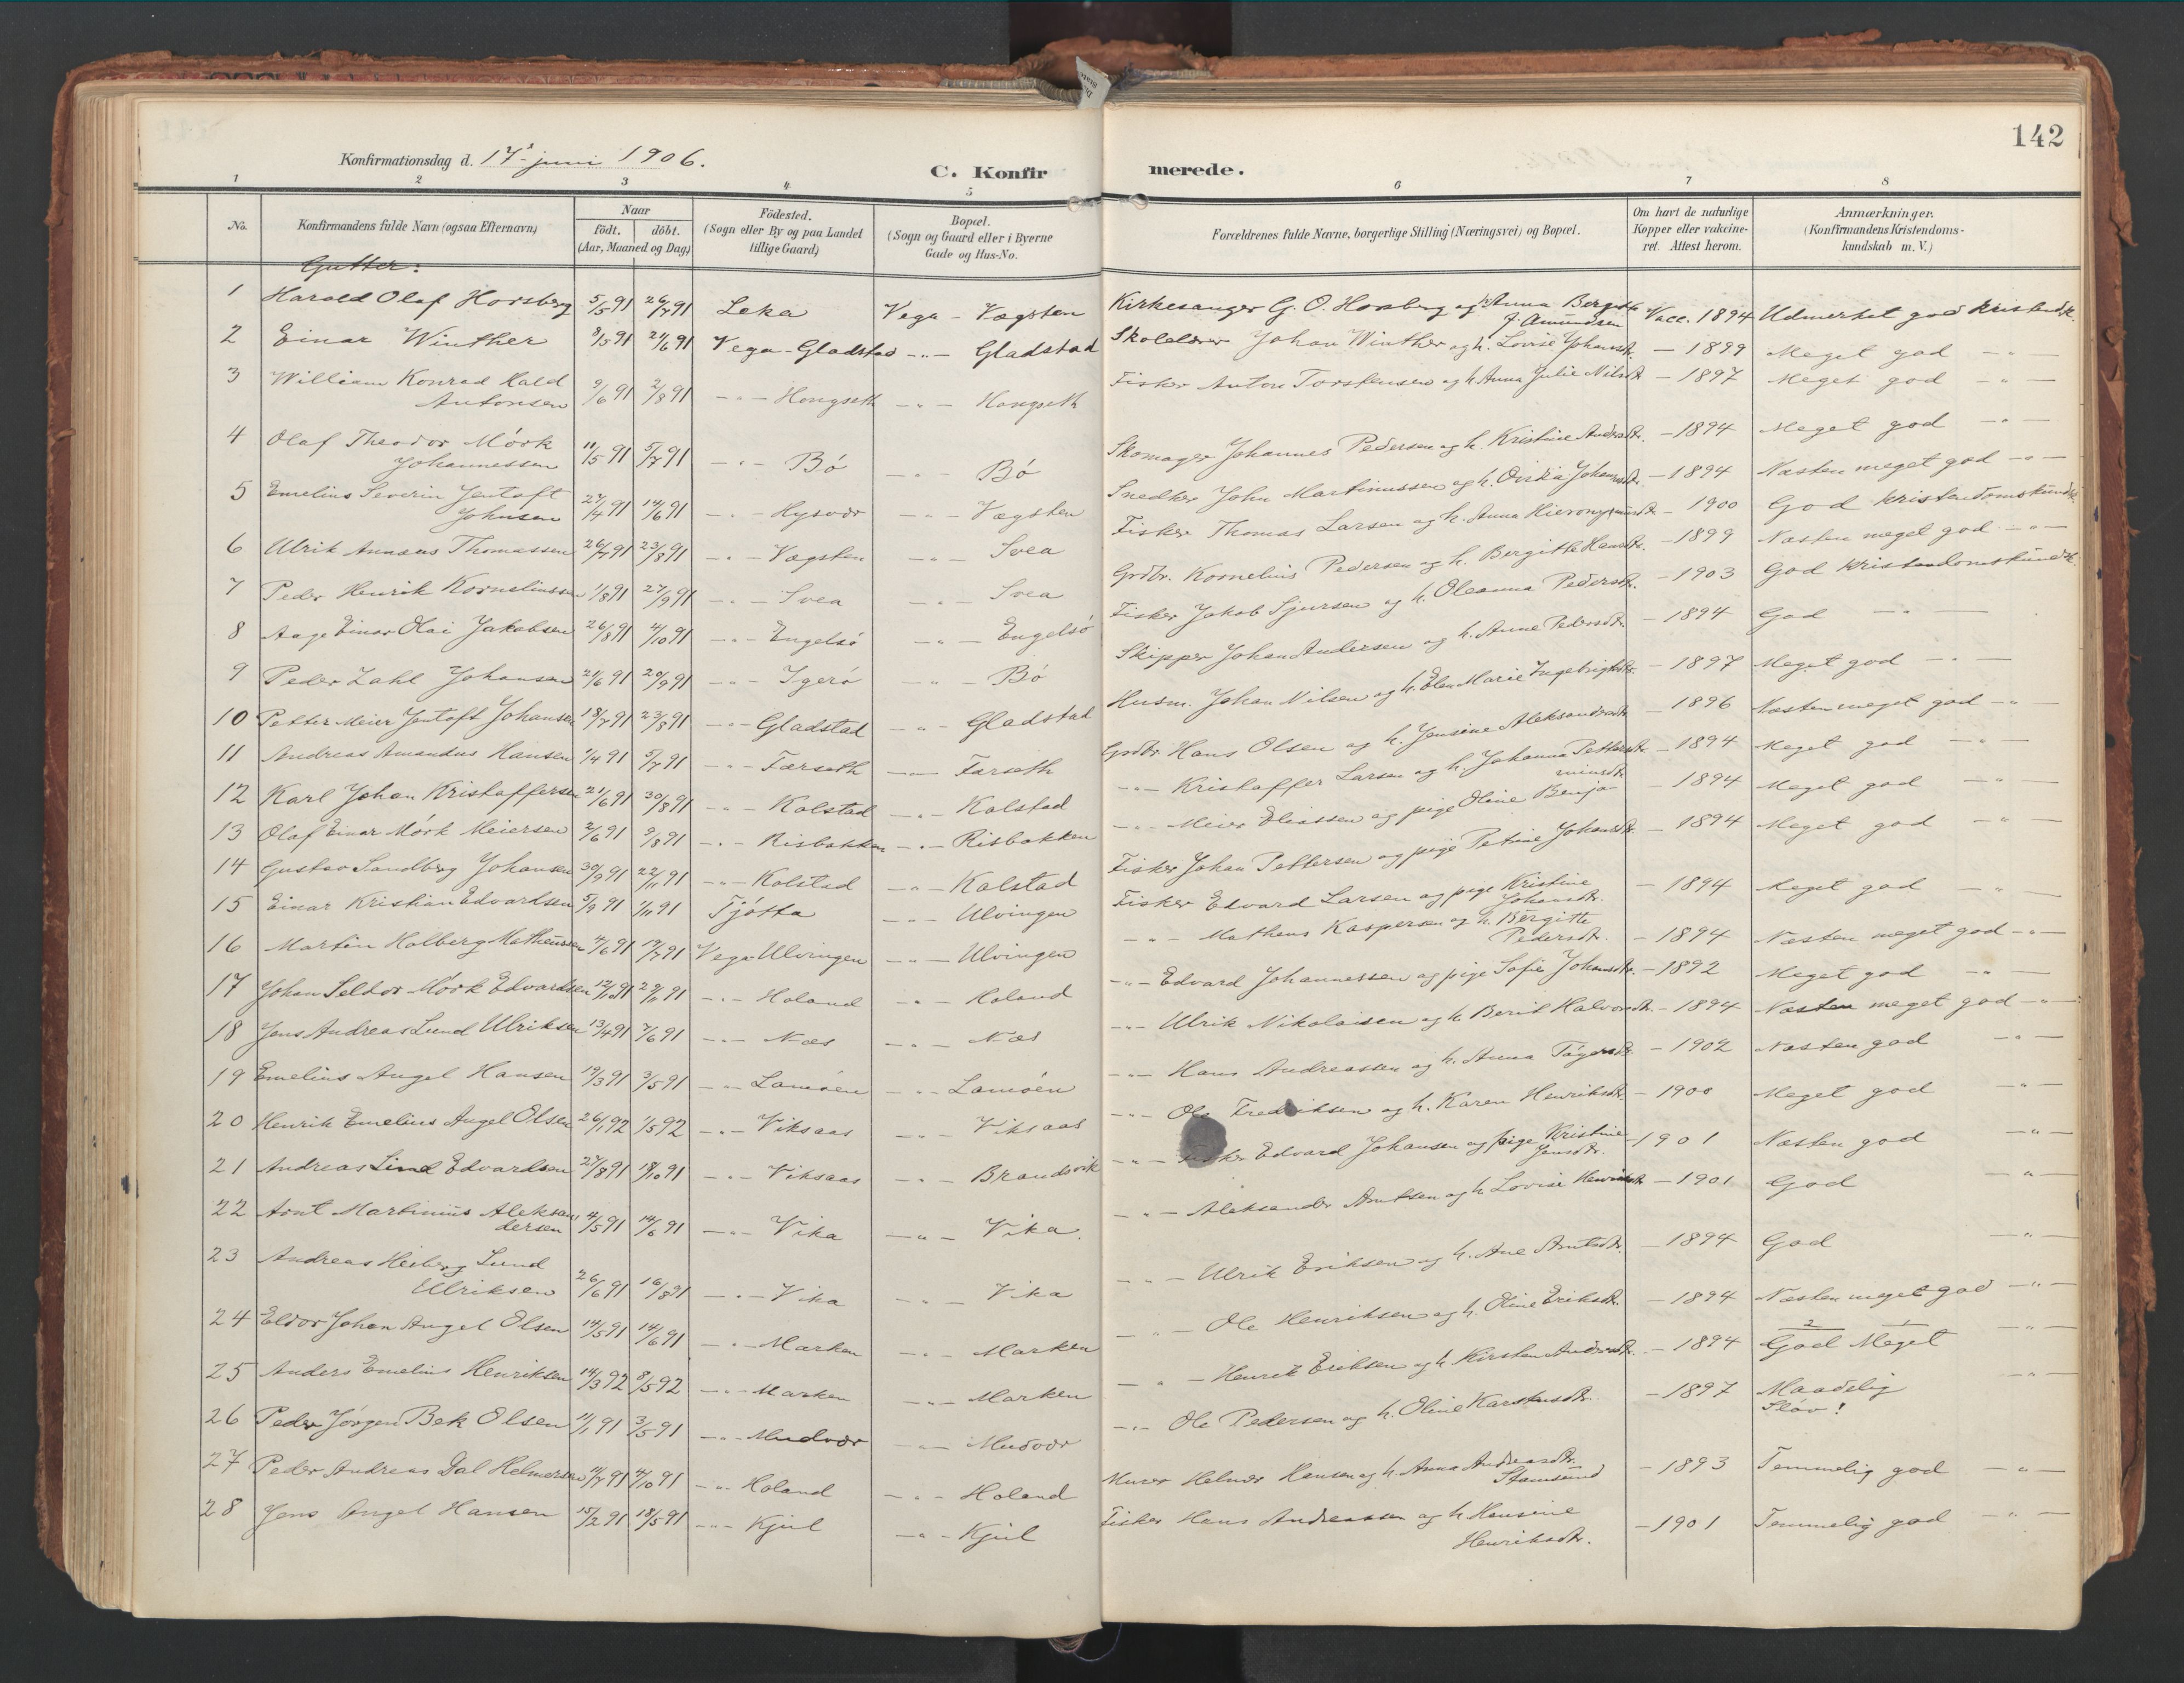 142
Konfirmationsdag d. 17' juni 1906.
C. Konfirmerede.
1 2 3 4 5 6 7 8
No. Konfirmandens fulde Navn (ogsaa Efternavn) Naar födt. döbt. (Aar, Maaned og Dag) Födested. (Sogn eller By og paa Landet tillige Gaard) Bopæl. (Sogn og Gaard eller i Byerne Gade og Hus-No. Forældrenes fulde Navne, borgerlige Stilling (Næringsvei) og Bopæl. Om havt de naturlige Kopper eller vakcineret. Attest herom. Anmærkninger. (Konfirmandens Kristendomskundskab m. V.)
Gutter:
1 Harald Olaf Horsberg 5/5 91 26/7 91 Leka Vega - Vægsten Kirkesanger G. O. Horsberg og h. Anna Bergitte J. Amundsen Vacc. 1894 Udmerket god kristendsk.
2 Einar Winther 8/5 91 21/6 91 Vega - Gladstad -"- Gladstad Skolelærer Johan Winther og h. Lovise Johansdtr. - 1899 Meget god -"-
3 William Konrad Hald Antonsen 9/6 91 2/8 91 -"- Hongseth -"- Hongseth Fisker Anton Torstensen og h. Anna Julie Nilsdtr. - 1897 Meget god -"-
4 Olaf Theodor Mörk Johannessen 11/5 91 5/7 91 -"- Bö -"- Bö Skomager Johannes Pedersen og h. Kristine Andersdtr. - 1894 Meget god -"-
5 Emelius Severin Jentoft Johnsen 27/4 91 14/6 91 -"- Hysvær -"- Vægsten Snedker John Martinussen og h. Johansdtr. - 1894 Næsten meget god -"-
6 Ulrik Annæus Thomassen 26/7 91 23/8 91 -"- Vægsten -"- Svea Fisker Thomas Larsen og h. Anna Hieronymusdtr. - 1900 God kristendomskundsk.
7 Peder Henrik Korneliussen 1/8 91 27/9 91 -"- Svea -"- Svea Grdbr. Kornelius Pedersen og h. Bergitte Hansdtr. - 1899 Næsten meget god -"-
8 Aage Einar Olai Jakobsen 26/8 91 4/10 91 -"- Engelsö -"- Engelsö Fisker Jakob Sjursen og h. Oleanna Pedersdtr. - 1903 God kristendomskundsk.
9 Peder Zahl Johansen 21/6 91 20/9 91 -"- Igerö -"- Bö Skipper Johan Andersen og h. Anne Pedersdtr. - 1894 God -"-
10 Petter Meier Jentoft Johansen 18/7 91 23/8 91 -"- Gladstad -"- Gladstad Husm. Johan Nilsen og h. Elen Marie Ingebrigtsdtr. - 1897 Meget god -"-
11 Andreas Amandus Hansen 1/4 91 5/7 91 -"- Færseth -"- Færseth Grdbr. Hans Olsen og h. Jensine Aleksandersdtr. - 1896 Næsten meget god -"-
12 Karl Johan Kristoffersen 21/6 91 30/8 91 -"- Kolstad -"- Kolstad -"- Kristoffer Larsen og h. Johanna Pettersdtr. - 1894 Meget god -"-
13 Olaf Einar Mörk Meiersen 2/6 91 9/8 91 -"- Risbakken -"- Risbakken -"- Meier Eliassen og pige Oline Benjaminsdtr. - 1894 Meget god -"-
14 Gustav Sandberg Johansen 30/9 91 22/11 91 -"- Kolstad -"- Kolstad Fisker Johan Pettersen og pige Petrine Johansdtr. - 1894 Meget god -"-
15 Einar Kristian Edvardsen 5/9 91 1/11 91 Tjötta -"- Ulvingen Fisker Edvard Larsen og pige Kristine Johansdtr. - 1894 Meget god -"-
16 Martin Holberg Matheussen 4/6 91 19/7 91 Vega Ulvingen -"- Ulvingen -"- Matheus Kaspersen og h. Bergitte Pedersdtr. - 1894 Næsten meget god -"-
17 Johan Seldor Mörk Edvardsen 12/10 91 29/11 91 -"- Holand -"- Holand -"- Edvard Johannessen og pige Sofie Johansdtr. - 1892 Meget god -"-
18 Jens Andreas Lund Ulriksen 13/4 91 7/6 91 -"- Næs -"- Næs -"- Ulrik Nikolaisen og h. Berit Halvorsdtr. - 1894 Næsten meget god -"-
19 Emelius Angel Hansen 19/3 91 3/5 91 -"- Lamöen -"- Lamöen -"- Hans Andreassen og h. Anna - 1902 Næsten god -"-
20 Henrik Emelius Angel Olsen 26/1 92 1/5 92 -"- Viksaas -"- Viksaas -"- Ole Fredriksen og h. Karen Henriksdtr. - 1900 Meget god -"-
21 Andreas Lind Edvardsen 27/8 91 18/10 91 -"- Viksaas -"- Brandsvik -"- Fisker Edvard Johansen og pige Kristine Jensdtr. - 1901 Næsten god -"-
22 Arnt Martinius Aleksandersen 4/5 91 14/6 91 -"- Vika -"- Vika. -"- Aleksander Arntsen og h. Lovise Henriksdtr. - 1901 God -"-
23 Andreas Heiberg Lund Ulriksen 26/6 91 16/8 91 -"- Vika -"- Vika -"- Ulrik Eriksen og h. Ane Arntsdtr. - 1894 God -"-
24 Eldor Johan Angel Olsen 14/5 91 14/6 91 -"- Marken -"- Marken -"- Ole Henriksen og h. Oline Eriksdtr. - 1894 Næsten meget god -"-
25 Anders Emelius Henriksen 14/3 92 8/5 92 -"- Marken -"- Marken -"- Henrik Eriksen og h. Kirsten Andersdtr. - 1894 2 God 1 Meget -"-
26 Peder Jörgen Bek Olsen 11/1 91 3/5 91 -"- Mudvær -"- Mudvær -"- Ole Pedersen og h. Oline Karstensdtr. - 1897 Maadelig Slöv! -"-
27 Peder Andreas Dal Helmersen 11/7 91 4/10 91 -"- Holand -"- Holand Murer Helmer Hansen og h. Anna Andreasdtr. Stamsund - 1893 Temmelig god -"-
28 Jens Angel Hansen 15/2 91 18/5 91 -"- Kjul -"- Kjul Fisker Hans Andreassen og h. Hansine Henriksdtr. - 1901 Temmelig god -"-